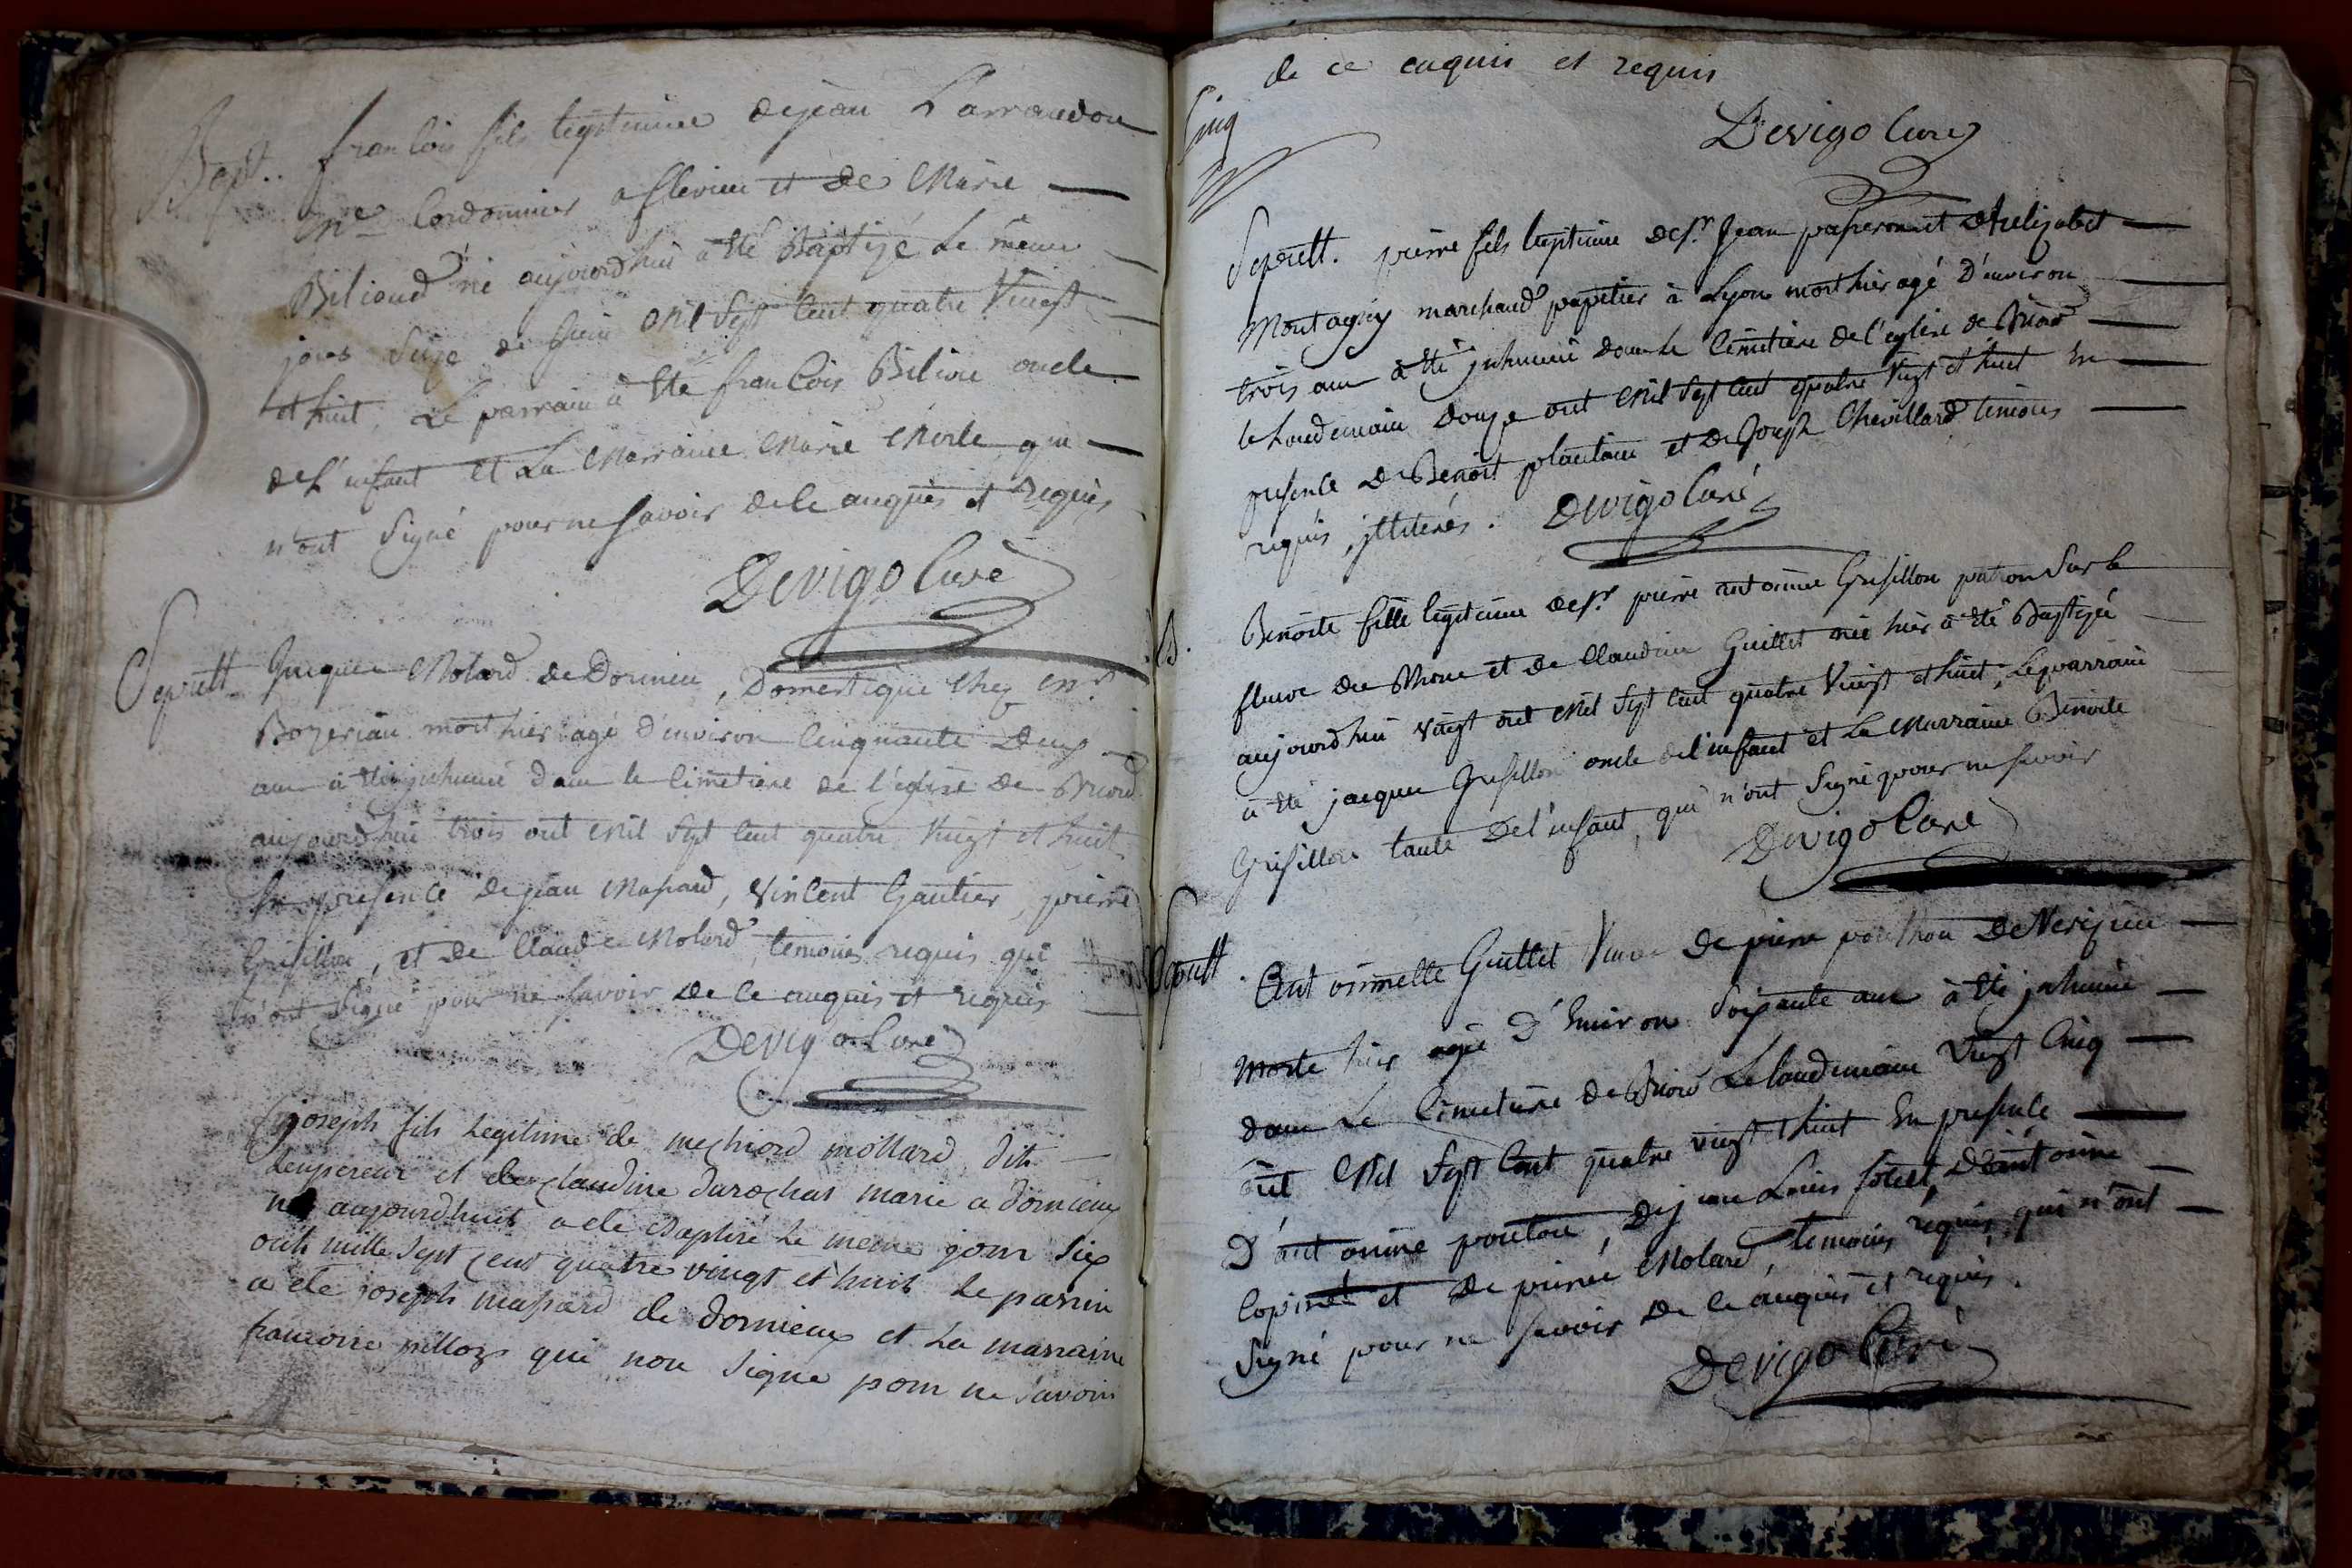 Bapt. francois fils legitime de jean Larraudon
Me Cordonnier a flevieu et de Marie
Biliaud né aujourdhui à été Baptizé Le meme
jour Seize de juin Mil Sept Cent quatre Vingt
et huit, Le parrain à été francois Biliou oncle
de L'enfant et La Marraine Marie Merle qui
n'ont Signé pour ne Savoir de Ce anquis et requis
Devigo Curé
Sepult. Jacques Molard de Dornieu, Domestique Chez Mr
Bozerian mort hier agé d'environ Cinquante Deux
ans à été inhumé dans le Cimetiere de l'église De Briord
aujourdhui trois out Mil Sept Cent quatre Vingt et huit
En presence de jean Massard, Vincent Gautier, pierre
Grisillon, et De Claude Molard temoins requis qui
n'ont Signé pour ne Savoir de Ce anquis et requis
Devigo Curé
joseph fils Legitime de mechiord mollard dit
Lempereur et de claudine durochat marie a dornieux
né aujourdhuit a ete Baptisé Le meme jour Six
outh mille Sept Cent quatre vingt et huit Le parrin
a ete joseph massard de dornieux et La marraine
francoise pilloz qui non Signe pour ne Savoir
de ce enquis et requis
Cinq
Devigo Curé
Sepult. pierre fils legitime de Sr. Jean passeron et d'Helizabet
Montagny marchand papetier à Lyon mort hier agé D'environ
trois ans à été inhumé dans Le Cimetiere de l'eglise de Briord
le Landemain Douze out Mil Sept Cent quatre Vingt et huit En
presence De Benoit plantain et De Joseph Chevillard temoins
requis, illiterés. Devigo Curé
B. Benoite fille legitime de Sr. pierre antoine Grisillon patron Sur le
fleuve du Rhone et de Claudine Guillet née hier à été Baptizée
aujourdhui Vingt out Mil Sept Cent quatre Vingt et huit, Le parrain
à été jacques Grisillon oncle de l'enfant et La Marraine Benoite
Grisillon tante De l'enfant, qui n'ont Signé pour ne Savoir
Devigo Curé
Sepult. Antoinnette Guillet Veuve de pierre ponthon De Verizieu
Morte hier agée D'Environ Soixante ans à été inhumée
dans Le Cimetiere de Briord Le landemain Vingt Cinq
out Mil Sept Cent quatre vingt et huit En presence
D'antoinne pontou, De jean Louis D'antoine
et De pierre Molard, temoins requis, qui n'ont
Signé pour ne Savoir De Ce anquis et requis.
Devigo Curé